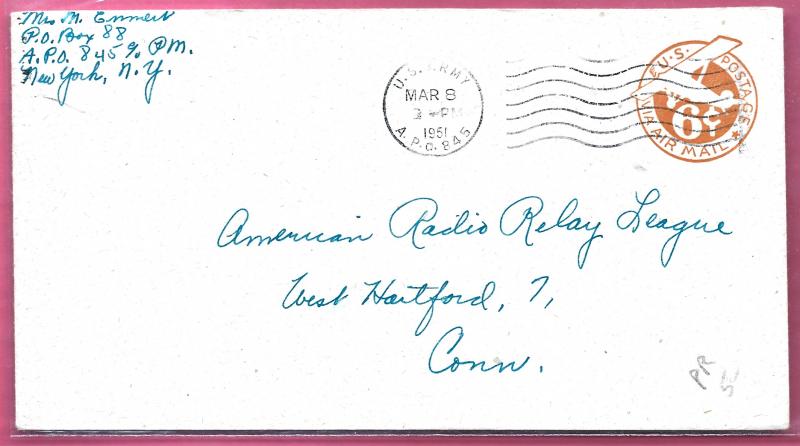 Mrs M. Emmert
P.O. Box 88
A.P.O. 845 % PM.
New York, N.Y.
U.S. ARMY
MAR 8
PM
1951
A.P.O. 845
U.S. POSTAGE
6¢
VIA AIR MAIL
American Radio Relay League
West Hartford, 7,
Conn.
PR